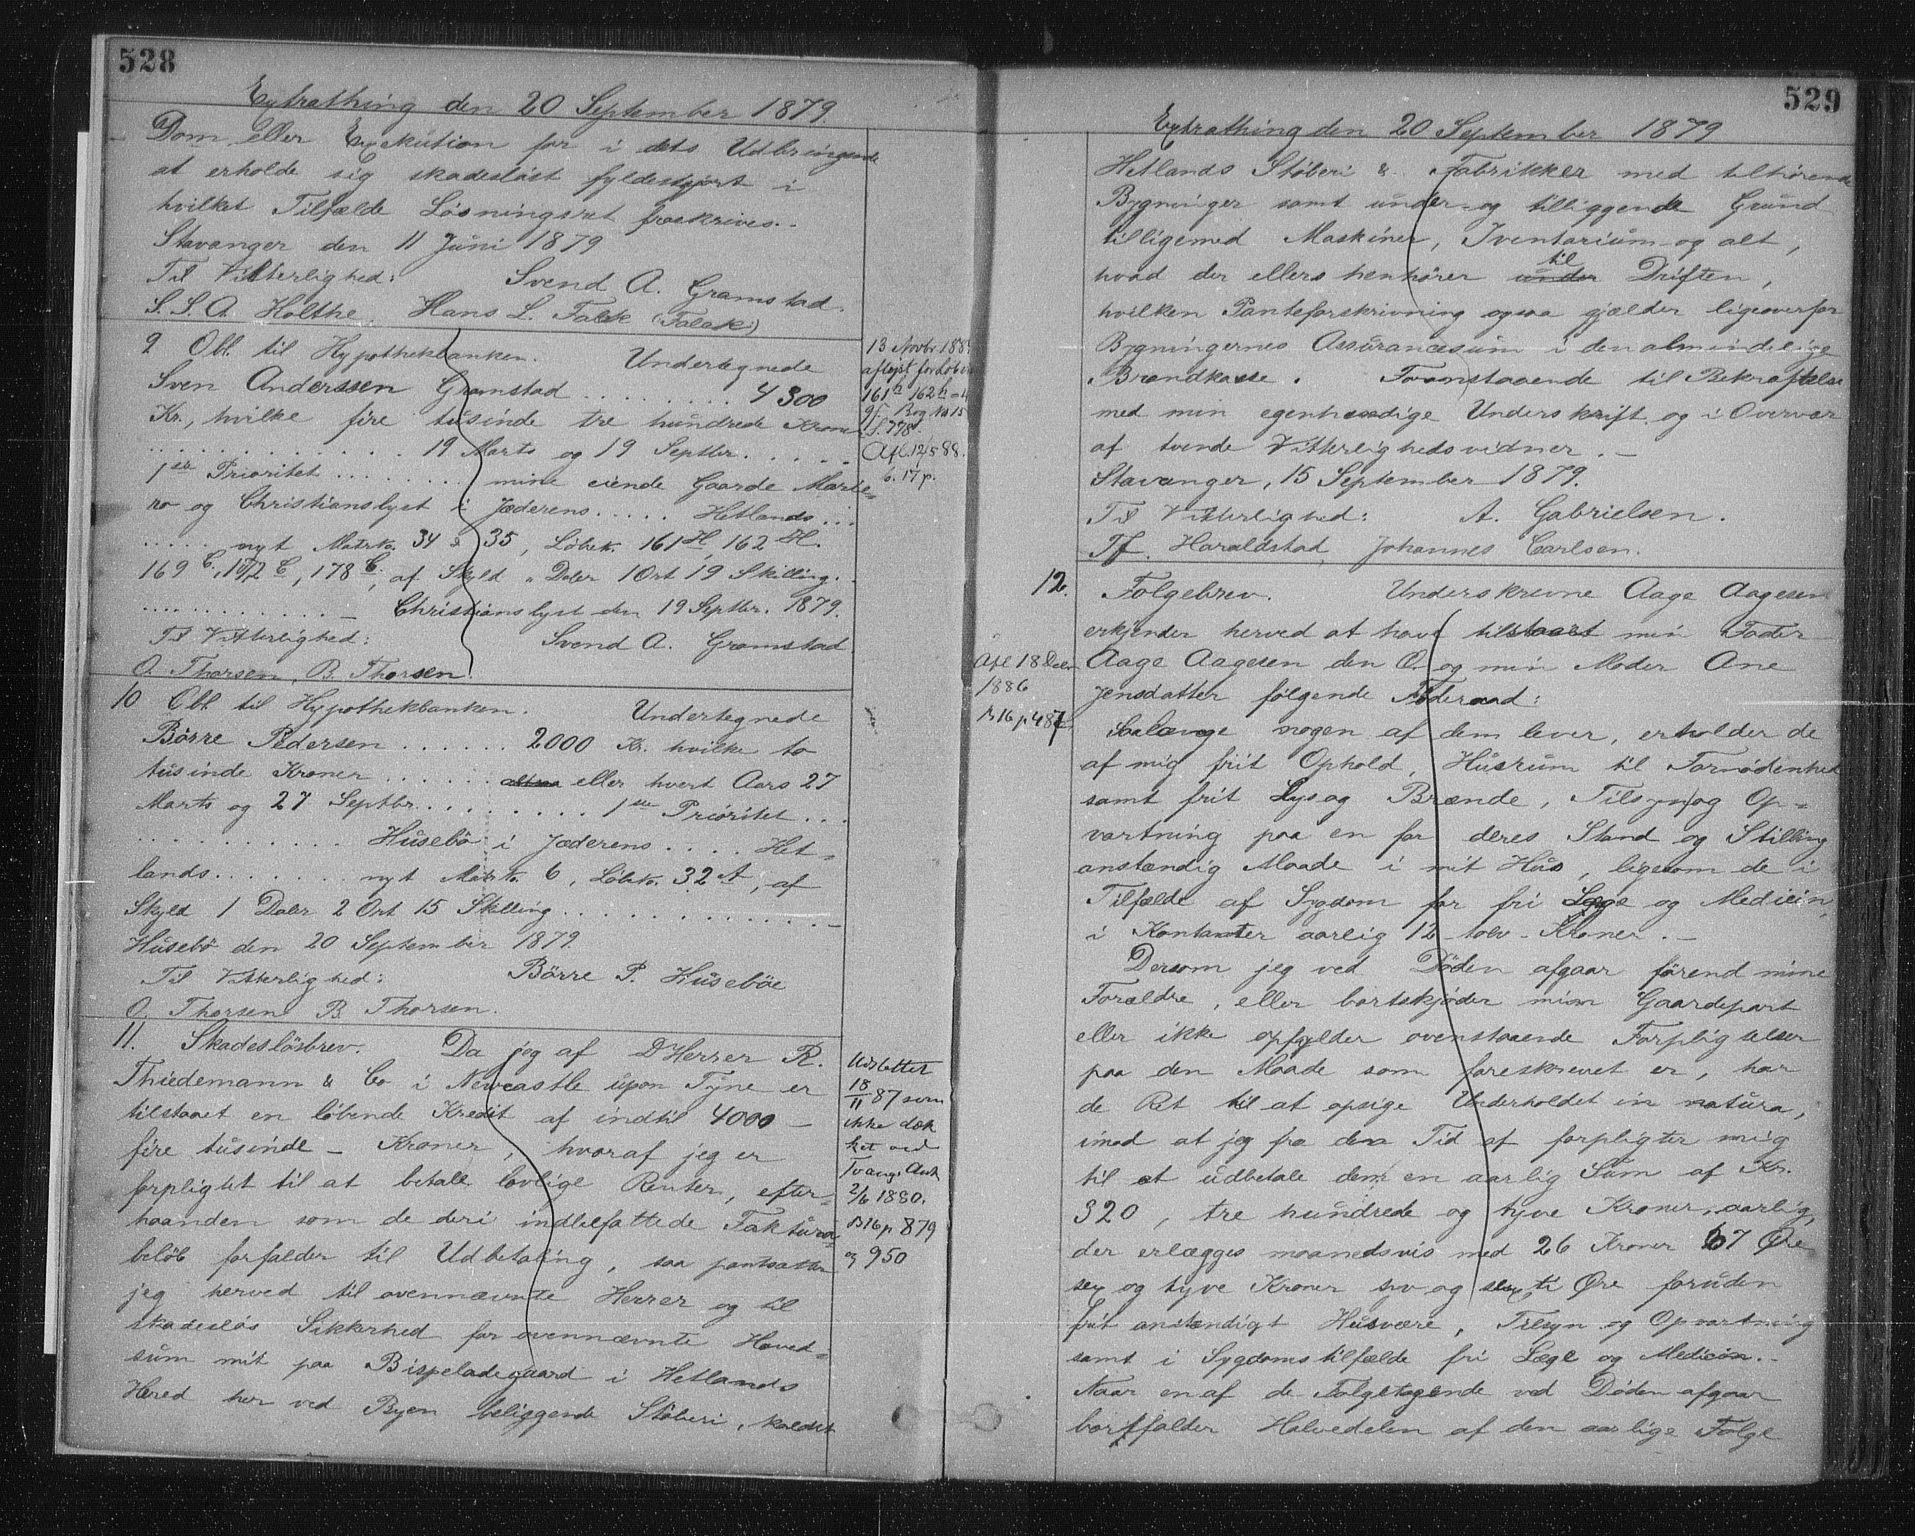 528
Extrathing den 20 September 1879
Dom eller Exekution for i dets Udbringende
at erholde sig skadesløst fyldestgjort i
hvilket Tilfælde Løsningsret fraskrives.
Stavanger den 11 Juni 1879
Til Vitterlighed: Svend A. Gramstad.
S. S. A. Holthe. Hans L. Falck (Falck)
9 Obl. til Hypothekbanken. Undertegnede
Sven Anderssen Gramstad ........ 4300
Kr., hvilke fire tusinde tre hundrede Kroner
............. 19 Marts og 19 Septbr. .....
1ste Prioritet ........ mine eiende Gaarde Marie-
ro og Christianslyst i Jæderens ..... Hetlands ...
..... nyt Matrk. 34 & 35, Löbek. 161 H, 162 H.
169 C., 172 C, 178 C, af Skyld " Daler 1 Ort 19 Skilling.
............ Christianslyst den 19 Septbr. 1879.
Til Vitterlighed: Svend A. Gramstad
O. Thorsen, B. Thorsen.
13 Novbr. 188
afløst forsaavidt
161 h 162 h
gf. Bog No 15
S. 778.
Afl. 12/5 88.
b. 17 p.
10 Obl. til Hypothekbanken. Undertegnede
Börre Pedersen ...... 2000 Kr. hvilke to
tusinde Kroner ...... altsaa eller hvert Aars 27
Marts og 27 Septbr. ........ 1ste Prioritet ...
........... Husebö i Jæderens .... Het-
lands ........ nyt Matrk. 6, Löbek. 32 A, af
Skyld 1 Daler 2 Ort 15 Skilling .............
Husebö den 20 September 1879.
Til Vitterlighed: Börre P. Huseböe
O. Thorsen B. Thorsen.
11. Skadesløsbrev. Da jeg af D'Herrer R.
Thiedemann & Co i Newcastle upon Tyne er
tilstaaet en løbende Kredit af indtil 4000 –
fire tusinde – Kroner, hvoraf jeg er
forpligtet til at betale lovlige Renter, efter-
haanden som de deri indbefattede Faktura-
beløb forfalder til Udbetaling, saa pantsætter
jeg herved til ovennævnte Herrer og til
skadesløs Sikkerhed for ovennævnte Hoved-
sum mit paa Bispeladegaard i Hetlands
Hered her ved Byen beliggende Støberi, kaldet
Udslettet
18
11 87 som
ikke dæk
ket ved
Tvangs Aukt
2/6 1880.
B 16 p 879
og 950
529
Extrathing den 20 September 1879
Hetlands Støberi & Fabrikker med tilhørende
Bygninger samt under- og tilliggende Grund
tilligemed Maskiner, Iventarium og alt,
til
hvad der ellers henhører under Driften,
hvilken Panteforskrivning ogsaa gjælder ligeoverfor
Bygningernes Assurancesum i den almindelige
Brandkasse. Foranstaaende til Bekræftelse
med min egenhændige Underskrift og i Overvær
af tvende Vitterlighedsvidner. –
Stavanger, 15 September 1879.
Til Vitterlighed: A. Gabrielsen.
Tf. Haraldstad, Johannes Carlsen.
12. Folgebrev. Underskrevne Aage Aagesen
erkjender herved at have tilstaaet min Fader
Aage Aagesen den Æ. og min Moder Ane
Jensdatter følgende Føderaad:
Saalænge nogen af dem lever, erholder de
af mig frit Ophold, Husrum til Fornødenhed
samt frit Lys og Brænde, Tilsyn og Op-
vartning paa en for deres Stand og Stilling
anstændig Maade i mit Hus, ligesom de i
Tilfælde af Sygdom faar fri Læge og Medicin,
i Kontanter aarlig 12 – tolv – Kroner. –
Dersom jeg ved Døden afgaar førend mine
Forældre, eller bortskjøder min Gaardepart
eller ikke opfylder ovenstaaende Forpligtelser
paa den Maade som foreskrevet er, har
de Ret til at opsige Underholdet in natura,
imod at jeg fra den Tid af forpligter mig
til at udbetale dem en aarlig Sum af Kr.
320, tre hundrede og tyve Kroner, aarlig,
der erlægges maanedsvis med 26 Kroner 67 Øre
sex og tyve Kroner syv og sexti Øre foruden
frit anstændigt Husvære, Tilsyn og Opvartning
samt i Sygdomstilfælde fri Læge og Medicin. –
Naar en af de Folgetagende ved Døden afgaar
bortfalder Halvedelen af den aarlige Folge
Afl 18 Decbr
1886
B 16 p 487